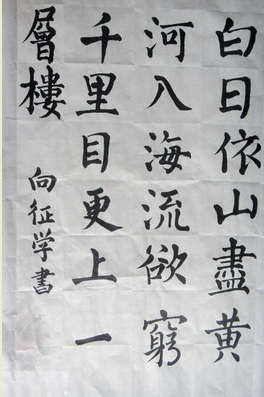 白日依山盡黄
河入海流欲窮
千里目更上一
層樓
向征学書